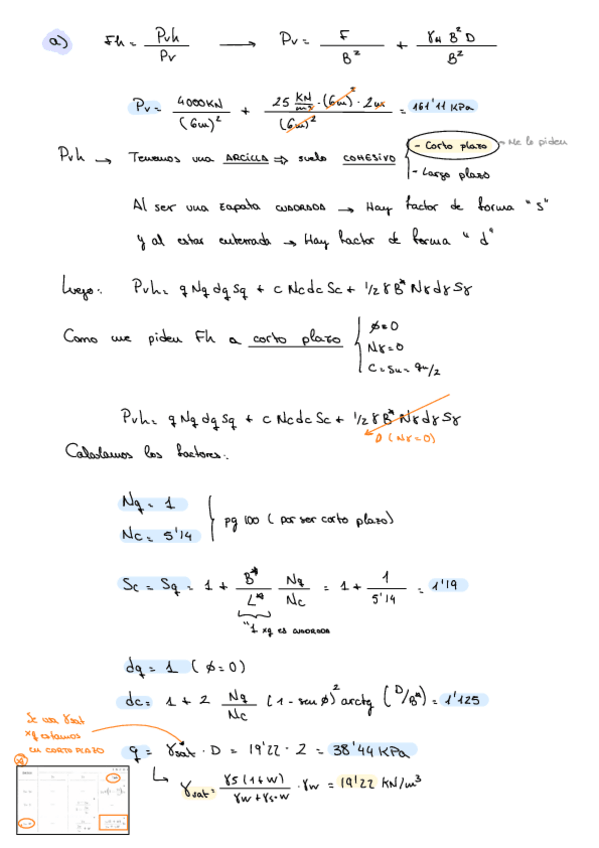 a) Fh = Pvh / Pv → Pv = F / B² + γH B² D / B²
Pv = 4000KN / (6m)² + 25 KN/m³ · (6m)² · 2m / (6m)² = 161'11 KPa
Pvh → Tenemos una ARCILLA ⇒ suelo COHESIVO { - Corto plazo - Me lo piden
- Largo plazo
Al ser una zapata CUADRADA → Hay factor de forma "s"
y al estar enterrada → Hay factor de forma "d"
Luego: Pvh = q Nq dq Sq + c Nc dc Sc + 1/2 γ B* Nγ dγ Sγ
Como me piden Fh a corto plazo { ø=0
Nγ=0
C = Su = qu/2
Pvh = q Nq dq Sq + c Nc dc Sc + 1/2 γ B* Nγ dγ Sγ
0 (Nγ=0)
Calculamos los factores:
Nq = 1
Nc = 5'14
pg 100 (por ser corto plazo)
Sc = Sq = 1 + B* / L* Nq / Nc = 1 + 1 / 5'14 = 1'19
"1 xq es cuadrada
dq = 1 (ø=0)
dc = 1 + 2 Nq / Nc (1 - sen ø)² arctg (D/B*) = 1'125
Se usa γsat
xq estamos
en CORTO PLAZO
q = γsat · D = 19'22 · 2 = 38'44 KPa
γsat = γs (1+w) / γw + γs·w · γw = 19'22 KN/m³